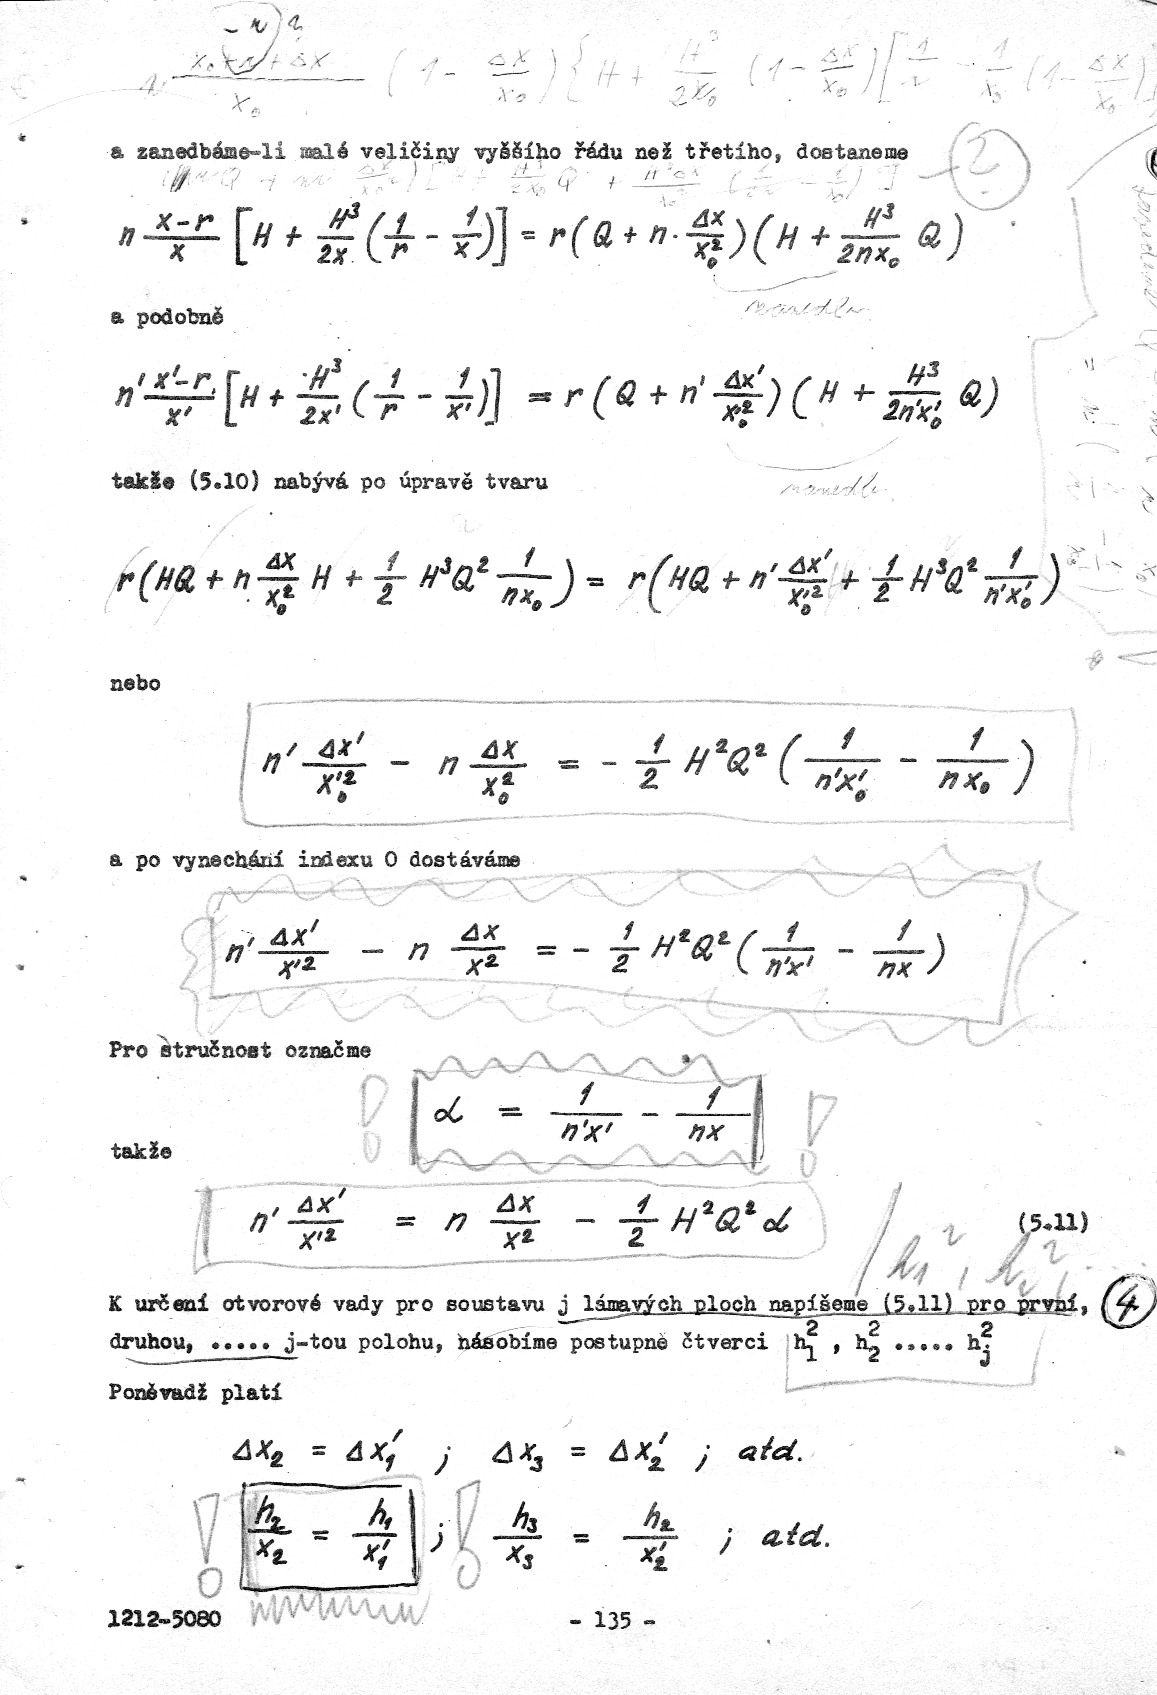 a zanedbáme-li malé veličiny vyššího řádu než třetího, dostaneme
n (x-r)/x [H + H³/2x (1/r - 1/x)] = r(Q + n · Δx/x₀²)(H + H³/2nx₀ Q)
a podobně
n' (x'-r)/x' [H + H³/2x' (1/r - 1/x')] = r(Q + n' Δx'/x₀'²)(H + H³/2n'x₀' Q)
takže (5.10) nabývá po úpravě tvaru
r(HQ + n Δx/x₀² H + 1/2 H³Q² 1/nx₀) = r(HQ + n' Δx'/x₀'² + 1/2 H³Q² 1/n'x₀')
nebo
n' Δx'/x₀'² - n Δx/x₀² = - 1/2 H²Q² (1/n'x₀' - 1/nx₀)
a po vynechání indexu O dostáváme
n' Δx'/x'² - n Δx/x² = - 1/2 H²Q² (1/n'x' - 1/nx)
Pro stručnost označme
! α = 1/n'x' - 1/nx !
takže
n' Δx'/x'² = n Δx/x² - 1/2 H²Q²α (5.11)
h₁², h₂², ....
K určení otvorové vady pro soustavu j lámavých ploch napíšeme (5.11) pro první, 4
druhou, ..... j-tou polohu, násobíme postupně čtverci h₁² , h₂² ..... hⱼ²
Poněvadž platí
Δx₂ = Δx₁' ; Δx₃ = Δx₂' ; atd.
! h₂/x₂ = h₁/x₁' ; ! h₃/x₃ = h₂/x₂' ; atd.
1212-5080 - 135 -